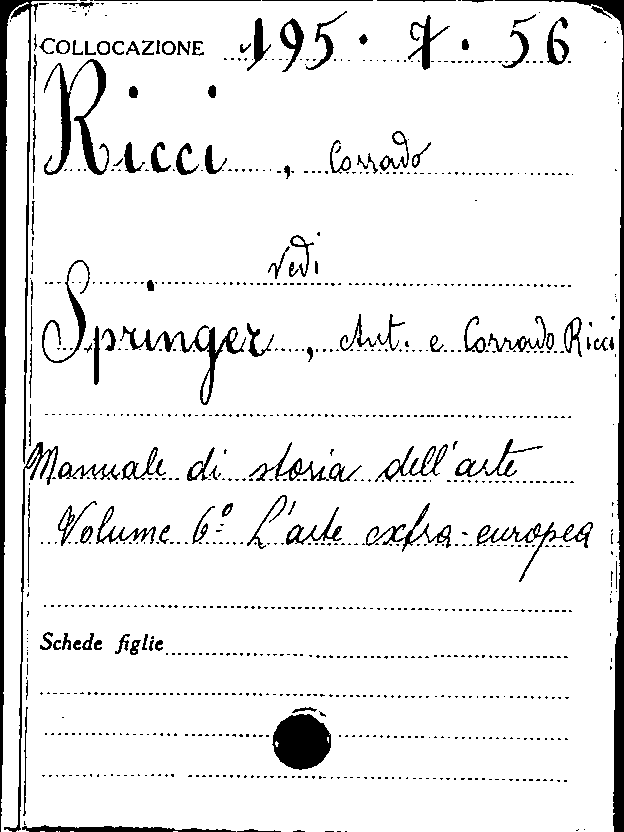 COLLOCAZIONE 195. 7. 56
Ricci, Corrado
vedi
Springer, Ant. e Corrado Ricci
Manuale di storia dell'arte
Volume 6º L'arte extra-europea
Schede figlie